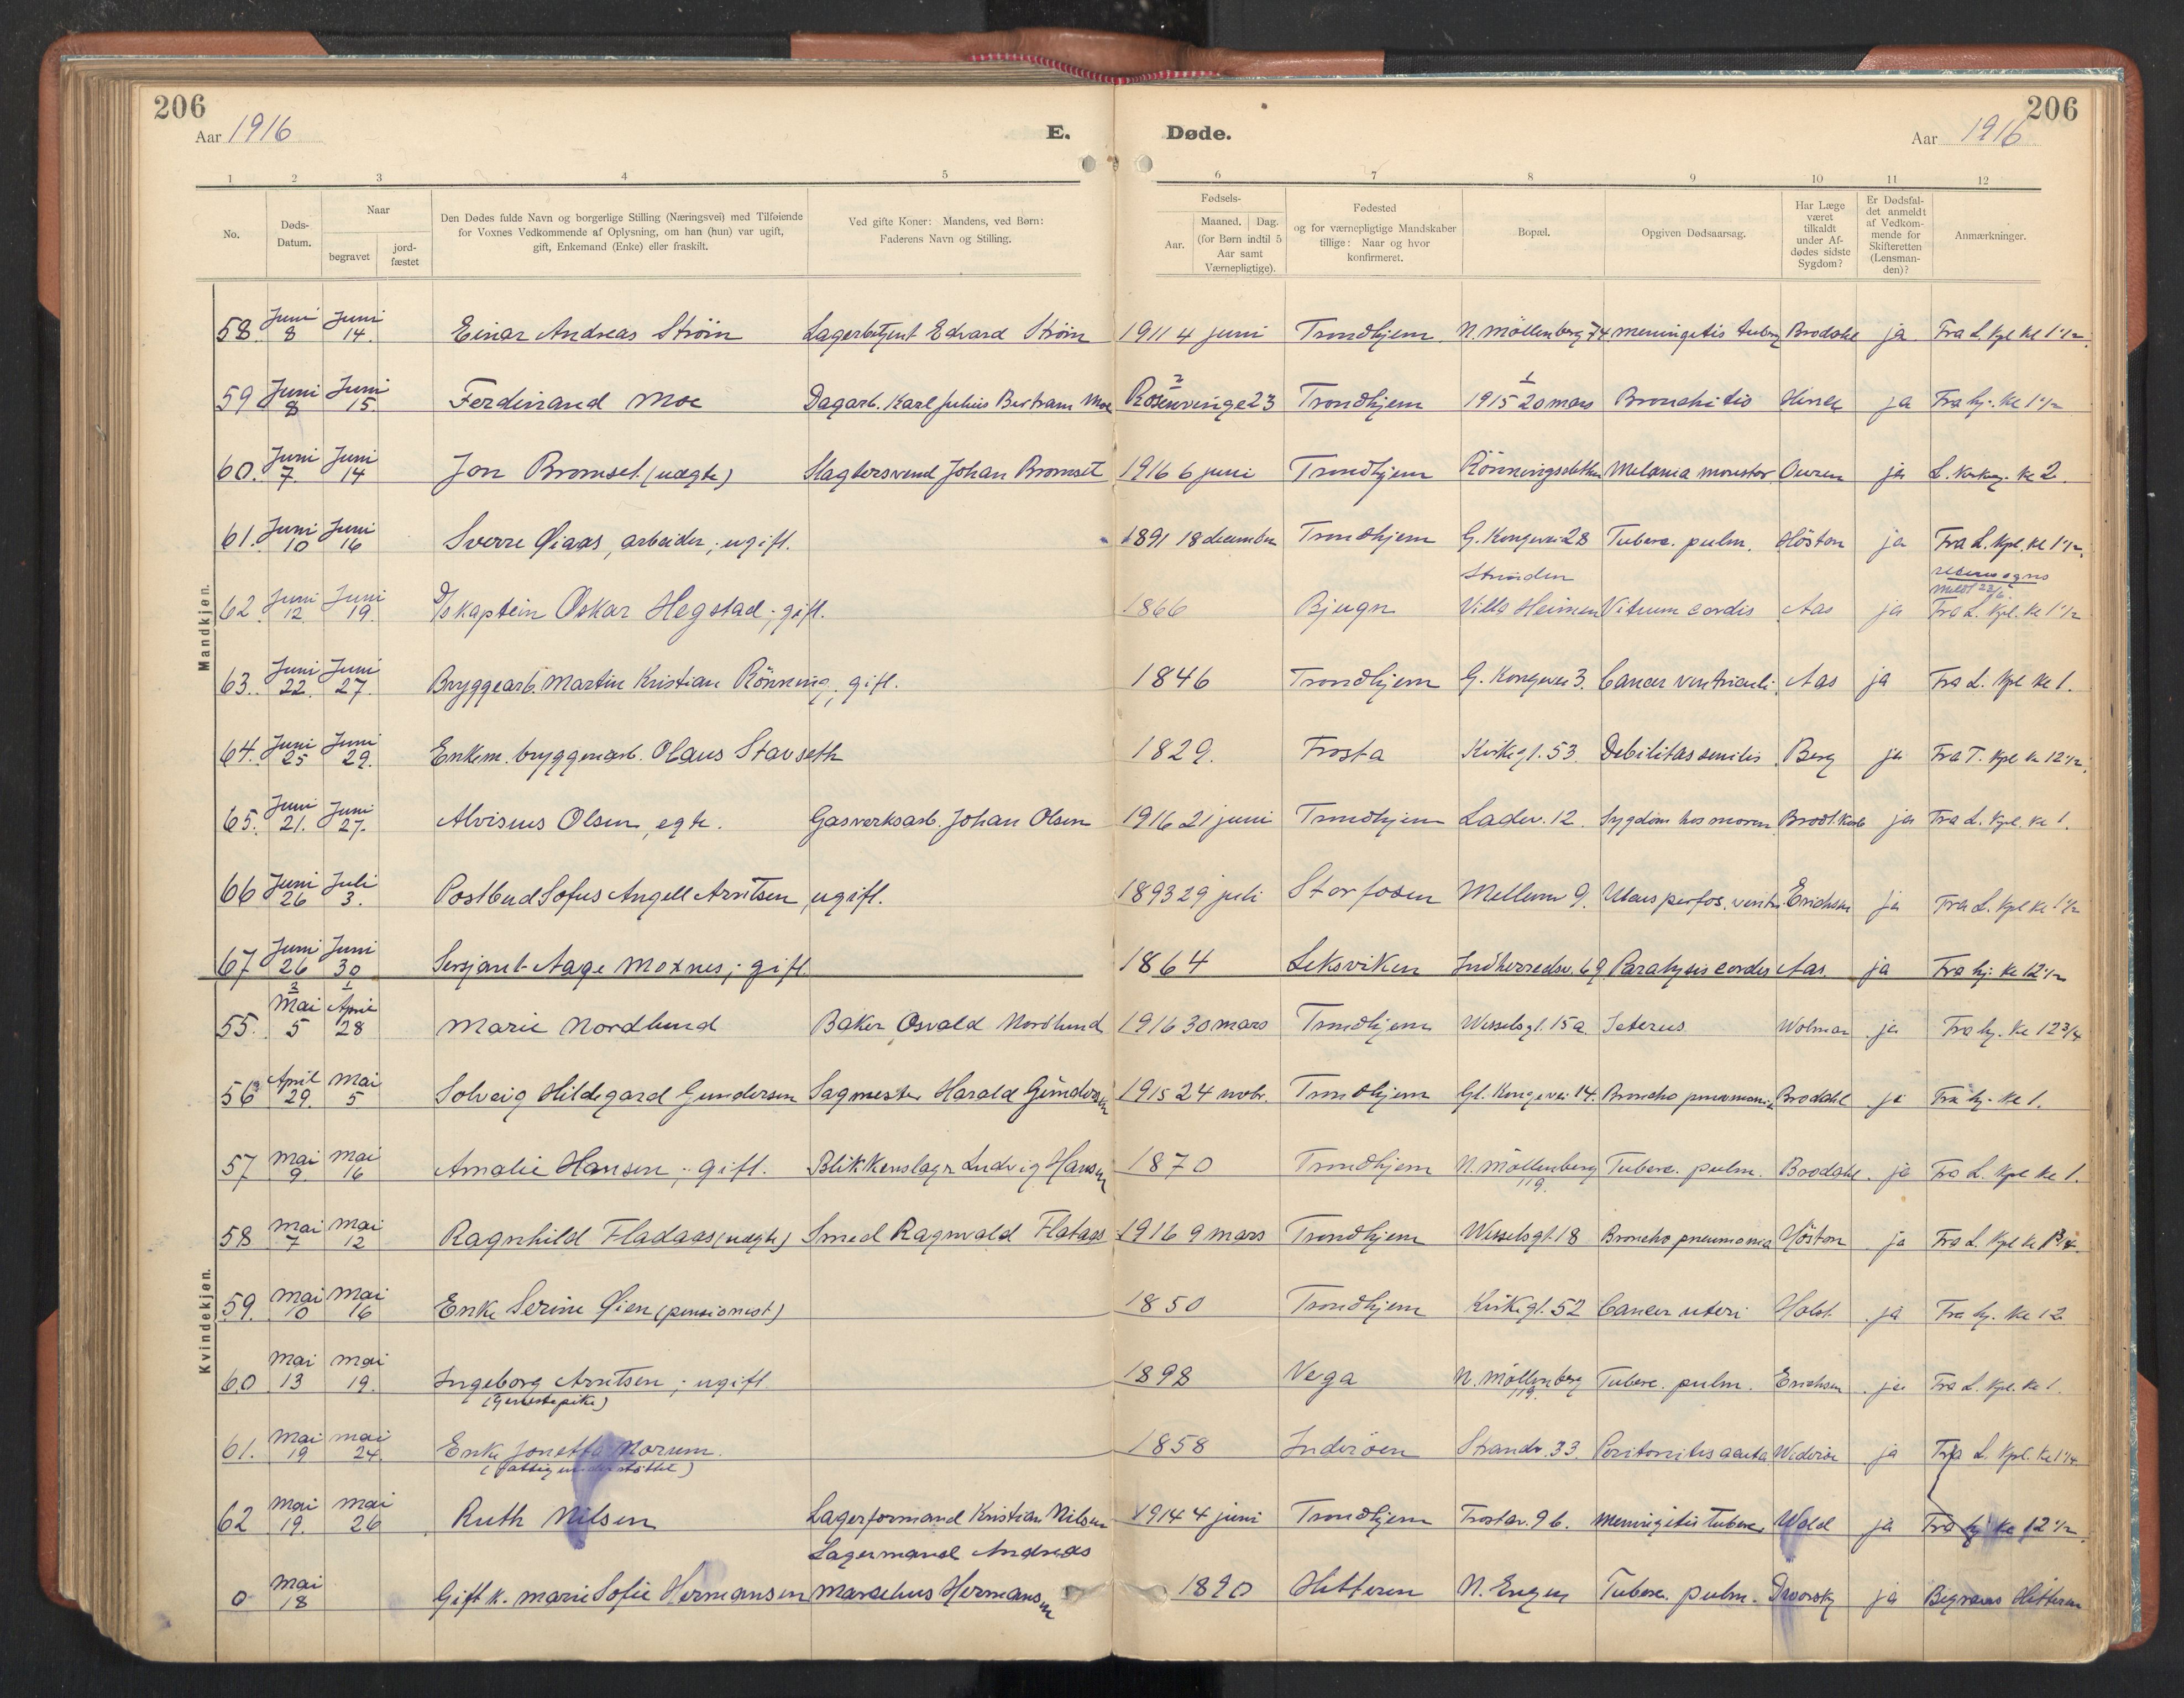 206
Aar 1916
E.
Døde.
Aar 1916
206
1 2 3 4 5 6 7 8 9 10 11 12
No.
Døds-
Datum.
Naar
begravet
jord-
fæstet
Den Dødes fulde Navn og borgerlige Stilling (Næringsvei) med Tilføiende
for Voxnes Vedkommende af Oplysning, om han (hun) var ugift,
gift, Enkemand (Enke) eller fraskilt.
Ved gifte Koner: Mandens, ved Børn:
Faderens Navn og Stilling.
Fødsels-
Aar.
Maaned. Dag.
(for Børn indtil 5
Aar samt
Værnepligtige).
Fødested
og for værnepligtige Mandskaber
tillige: Naar og hvor
konfirmeret.
Bopæl.
Opgiven Dødsaarsag.
Har Læge
været
tilkaldt
under Af-
dødes sidste
Sygdom?
Er Dødsfal-
det anmeldt
af Vedkom-
mende for
Skifteretten
(Lensman-
den)?
Anmærkninger.
Mandkjøn.
58. Juni 8 Juni 14. Einar Andreas Strøm Lagerbetjent Edvard Strøm 1911 4 juni Trondhjem. N. Möllenberg 74 meningitis tuberc Brodahl ja Fra L. Kpl kl 1 1/2.
59 Juni 8 Juni 15. Ferdinand Moe Dagarb. Karl Julius Bertram Moe 2 Rosenvinge 23 Trondhjem 1 1915 20 mars Bronchitis ja Fra hj. kl 1 1/2
60. Juni 7. Juni 14 Jon Bromset (uægte) Slagtersvend Johan Bromset 1916 6 juni Trondhjem Melania ja kl 2.
61. Juni 10 Juni 16 Sverre Øiaas, arbeider; ugift. 1891 18 december Trondhjem G. Kongevei 28 Tuberc. pulm. Höston ja Fra L. Kpl. kl 1 1/2.
Strinden
meldt 22/6.
62 Juni 12. Juni 19. D/S kaptein Oskar Hegstad; gift. 1866 Bjugn Villa Heimen Vitium cordis Aas ja Fra L. Kpl. kl 1 1/2
63. Juni 22. Juni 27. Bryggearb. Martin Kristian Rönning; gift. 1846 Trondhjem G. Kongevei 3. Cancer ventriculi. Aas ja Fra L. Kpl kl 1.
64. Juni 25 Juni 29. Enkem. bryggeriarb. Olaus Stavseth 1829. Frosta Kirkegt. 53. Debilitas senilis Berg ja Fra T. Kpl kl 12 1/2.
65. Juni 21. Juni 27. Alvisius Olsen, egte. Gasverksarb. Johan Olsen 1916 21 juni Trondhjem Ladev. 12. Sygdom hos moren ja Fra L. Kpl. kl 1.
66 Juni 26 Juli 3. Postbud Sofus Angell Arntsen, ugift. 1893 29 juli Storfosen Mellemv 9. Ulcus perfor. ventr. Erichsen ja Fra L. Kpl kl 1 1/2
67 Juni 26 Juni 30 Sersjant Aage Moxnes; gift 1864 Leksviken Indherredsv. 69. Paralysis cordis Aas. ja Fra hj. kl 12 1/2
Kvindekjøn.
55. 2 Mai 5 1 April 28 Marie Nordlund Baker Osvald Nordlund 1916 30 mars Trondhjem Wesselsgt. 15a. Icterus. Wolman ja Fra hj. kl 12 3/4
56 April 29. Mai 5 Solveig Hildegard Gundersen Sagmester Harald Gundersen 1915 24 novbr. Trondhjem Gl. Kongevei 14. Broncho pneumoni Brodahl ja Fra hj. kl 1.
57 Mai 9. Mai 16 Amalie Hansen; gift. Blikkenslagr Ludvig Hansen 1870 Trondhjem N. Möllenberg 119. Tuberc. pulm. Brodahl. ja Fra L. Kpl kl 1.
58 Mai 7 Mai 12 Ragnhild Fladaas (uægte) Smed Ragnvald Flataas 1916 9 mars Trondhjem Wesselsgt. 18 Broncho pneumonia Höston ja Fra L. Kpl kl
59. Mai 10 Mai 16 Enke Serine Øien (pensionist) 1850 Trondhjem Kirkegt. 52 Cancer uteri Holst. ja Fra hj. kl 12
60 Mai 13 Mai 19. Ingeborg Arntsen; ugift 1898 Vega N. Möllenberg 119. Tuberc. pulm. Erichsen ja Fra L. Kpl. kl 1.
(tjenestepike)
61. Mai 19 Mai 24. Enke Jonetta Morum. 1858 Inderöen Strandv. 33. Peritonitis acuta Wideröe ja Fra L. Kpl. kl 1 1/4
(fattigunderstöttet)
62 Mai 19. Mai 26 Ruth Nilsen Lagerformand Kristian Nilsen 1914 4 juni Trondhjem Frostav. 9b. meningitis tuberc. Wold ja Fra hj kl 12 1/2.
Lagermand Andreas
0 Mai 18 Gift k. Marie Sofie Hermansen Marselius Hermansen 1890 Hitteren N. Engen Tuberc. pulm. Dvorsky ja Begraves Hitteren